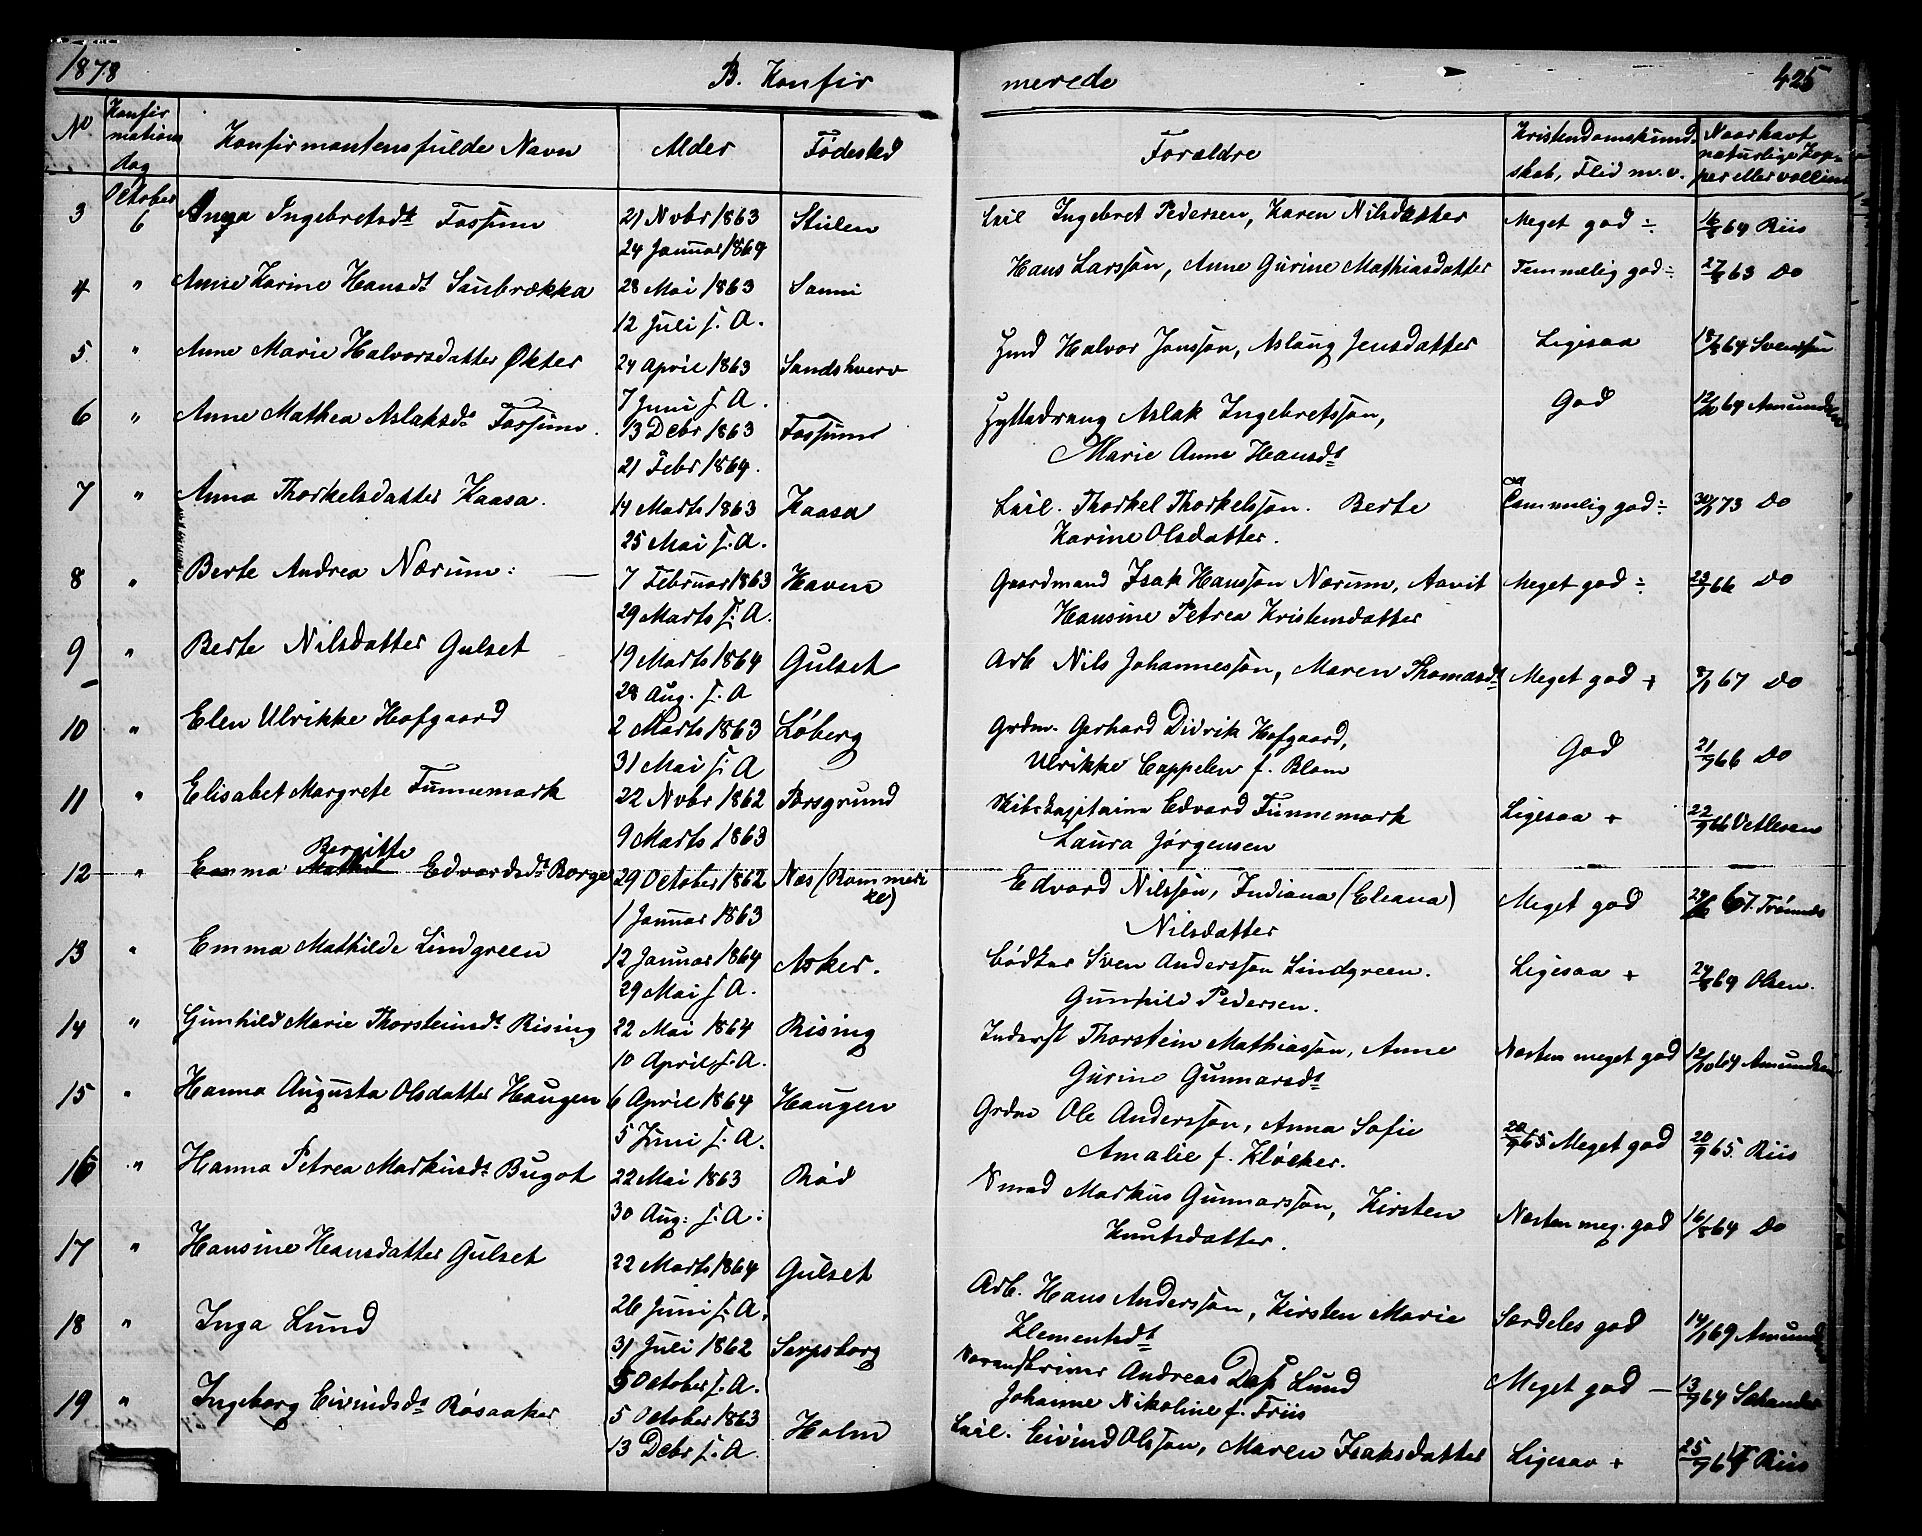 1878 B. Konfir merede 425
No Konfirmations dag Konfirmantens fulde Navn Alder Fødested Forældre Kristendomskundskab, Flid m.v. Naar havt naturlige Kopper eller vaccin
3 October 6 Anna Ingebretsdt Fossum 21 Novbr 1863 Stulen Leil Ingebret Pedersen, Karen Nilsdatter Meget god ÷ 16/8 64 Riis
24 Januar 1864
4 " Anne Karine Hansdt Saubrækka 28 Mai 1863 Sanni Hans Larssøn, Anne Gurine Mathiasdatter Temmelig god ÷ 27/8 63 Do
12 Juli s. A.
5 " Anne Marie Halvorsdatter Økter 24 April 1863 Sandshverv Halvor Jonssøn, Aslaug Jensdatter Ligesaa 18/8 64 Svenssen
7 Juni s. A.
6 " Anne Mathea Aslaksdt Fossum. 13 Debr 1863 Fossum Hyttedreng Aslak Ingebretssøn, God 12/10 64 Amundsen
21 Febr 1864. Marie Anne Hansdt
7 " Anna Thorkelsdatter Kaasa. 14 Marts 1863 Kaasa Leil. Thorkel Thorkelssøn. Berte Temmelig god ÷ 30/1 73 Do
25 Mai s. A. Karine Olsdatter.
8 " Berte Andrea Nærum: 7 Februar 1863 Haven Gaardmand Isak Hanssøn Nærum, Aavit Meget god ÷ 23/1 66 Do
29 Marts s. A. Hansine Petrea Kristensdatter
9 " Berte Nilsdatter Gulset 19 Marts 1864 Gulset Arb Nils Johannessøn, Maren Thomasdt Meget god + 8/1 67 Do
28 Aug. s. A
10 " Elen Ulrikke Hofgaard 2 Marts 1863 Løberg Grdm. Gerhard Didrik Hofgaard, God 21/9 66 Do
31 Mai s. A Ulrikke Cappelen f. Blom
11 " Elisabet Margrete Funnemark 22 Novbr 1862 Porsgrund Skibskapitain Edvard Funnemark Ligesaa + 22/9 66 Vetlesen
9 Marts 1863 Laura Jørgensen
Bergitte
12 " Emma Mathil Edvardsdt Borge 29 October 1862 Næs (Rommerike) Edvard Nilssøn, Indiana (Eleana) Meget god 24/6 67. Trønnes
1 Januar 1863 Nilsdatter
13 " Emma Mathilde Lindgreen 12 Januar 1864 Asker. Bødker Sven Anderssøn Lindgreen. Ligesaa + 24/8 69 Olsen.
29 Mai s A. Gunhild Pedersen.
14 " Gunhild Marie Thorsteinsdt Rising 22 Mai 1864 Rising Inderst Thorstein Mathiassøn, Anne Næsten meget god 12/10 64 Amundsen
10 April s. A. Gurine Gunnarsdt
15 " Hanna Augusta Olsdatter Haugen 6 April 1864 Haugen Grdm Ole Anderssøn, Anna Sofie 20/9 65 Meget god 20/9 65. Riis
5 Juni s. A. Amalie f. Kløcker.
16 " Hanna Petrea Markusdt Bugot 22 Mai 1863 Rød Markus Gunnarssøn, Kirsten Næsten meg. god 16/8 64 Do
30 Aug: s. A: Knutsdatter.
17 " Hansine Hansdatter Gulset 22 Marts 1864 Gulset Arb. Hans Anderssøn, Kirsten Marie Særdeles god 14/1 69 Amunds
26 Juni s. A. Klementsdt
18 " Inga Lund 31 Juli 1862 Sarpsborg Andreas Dass Lund Meget god — 13/9 64 Salander
5 October s. A. Johanne Nikoline f. Friis
19 " Ingeborg Eivindsdt Røsaaker 5 October 1863 Holm Leil. Eivind Olssøn, Maren Isaksdatter Ligesaa + 25/9 64 Riis
13 Debr s. A.